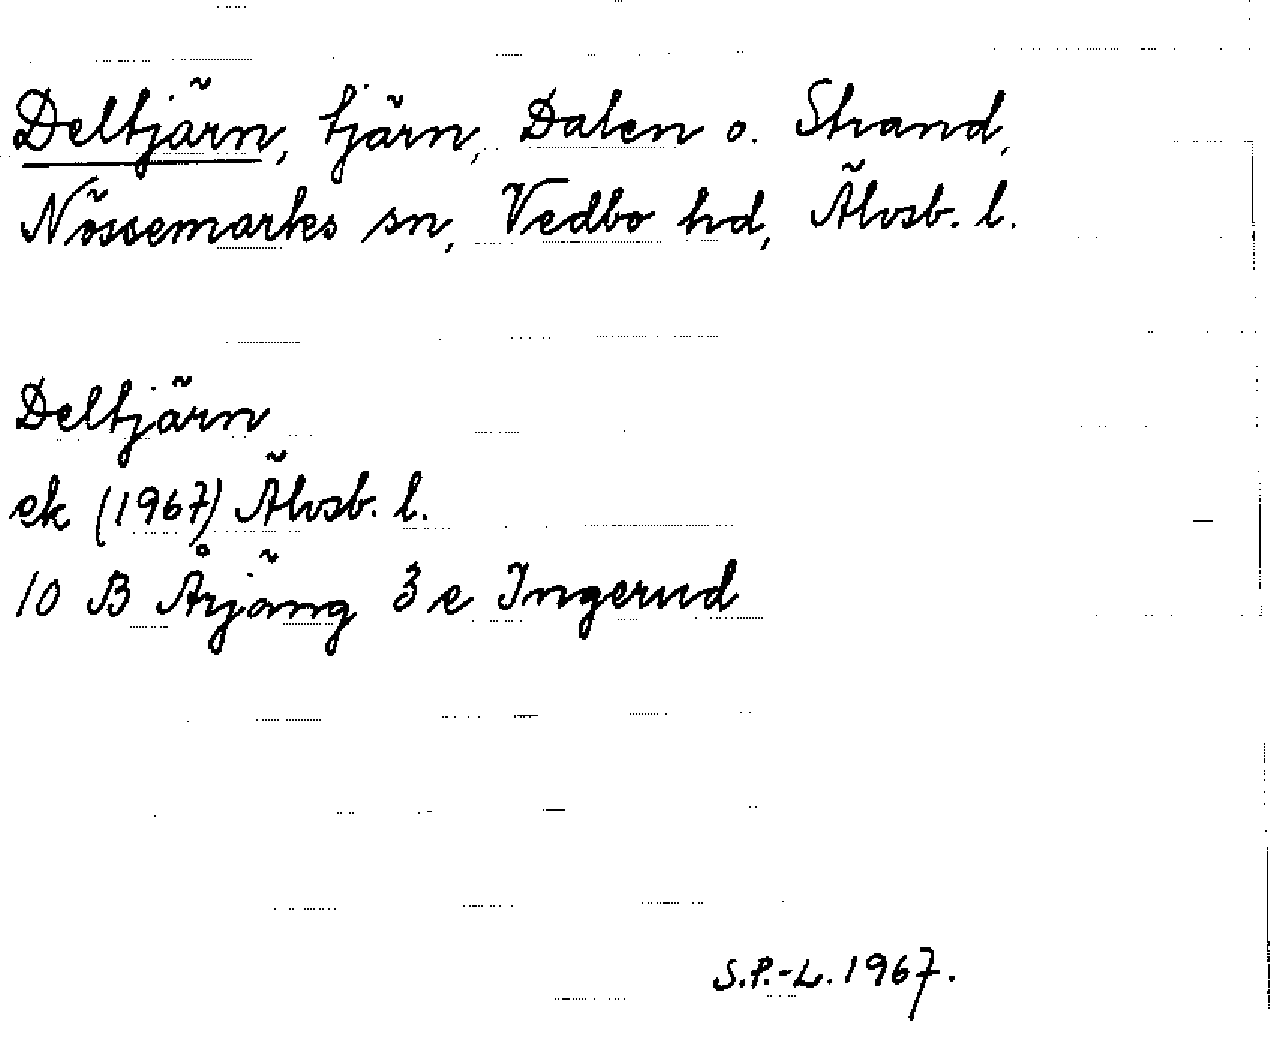 Deltjärn, tjärn, Dalen o. Strand,
Nössemarks sn, Vedbo hd, Älvsb. l.
Deltjärn
ek (1967) Älvsb. l.
10 B Årjäng 3 e Ingerud
S.P.-L. 1967.